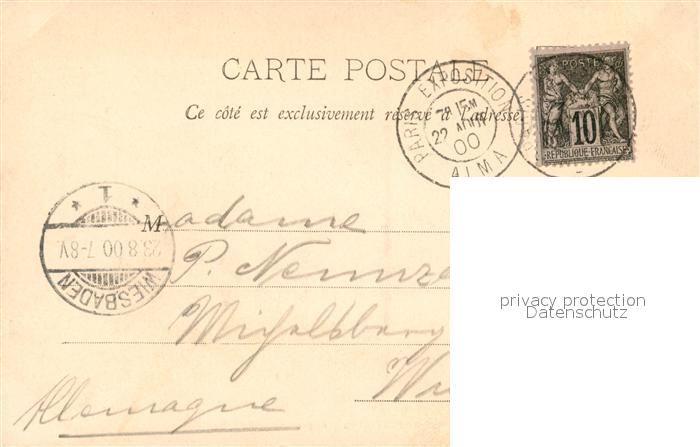 CARTE POSTALE
Ce côté est exclusivement réservé à l'adresse
PARIS EXPOSITION
22 AOUT
00
ALMA
POSTE
10
REPUBLIQUE FRANÇAISE
1
23.8.00.7-8V.
WIESBADEN
Madame
P.
Michelsberg
Allemagne
privacy protection
Datenschutz